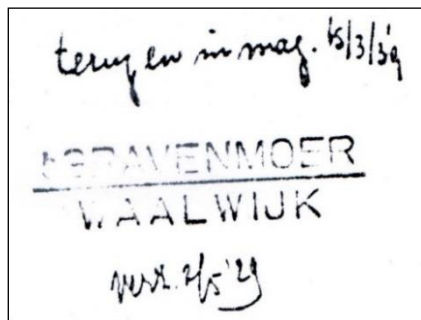 terug en in mag. 15/3/39
'sGRAVENMOER
WAALWIJK
verz. 2/5 '29